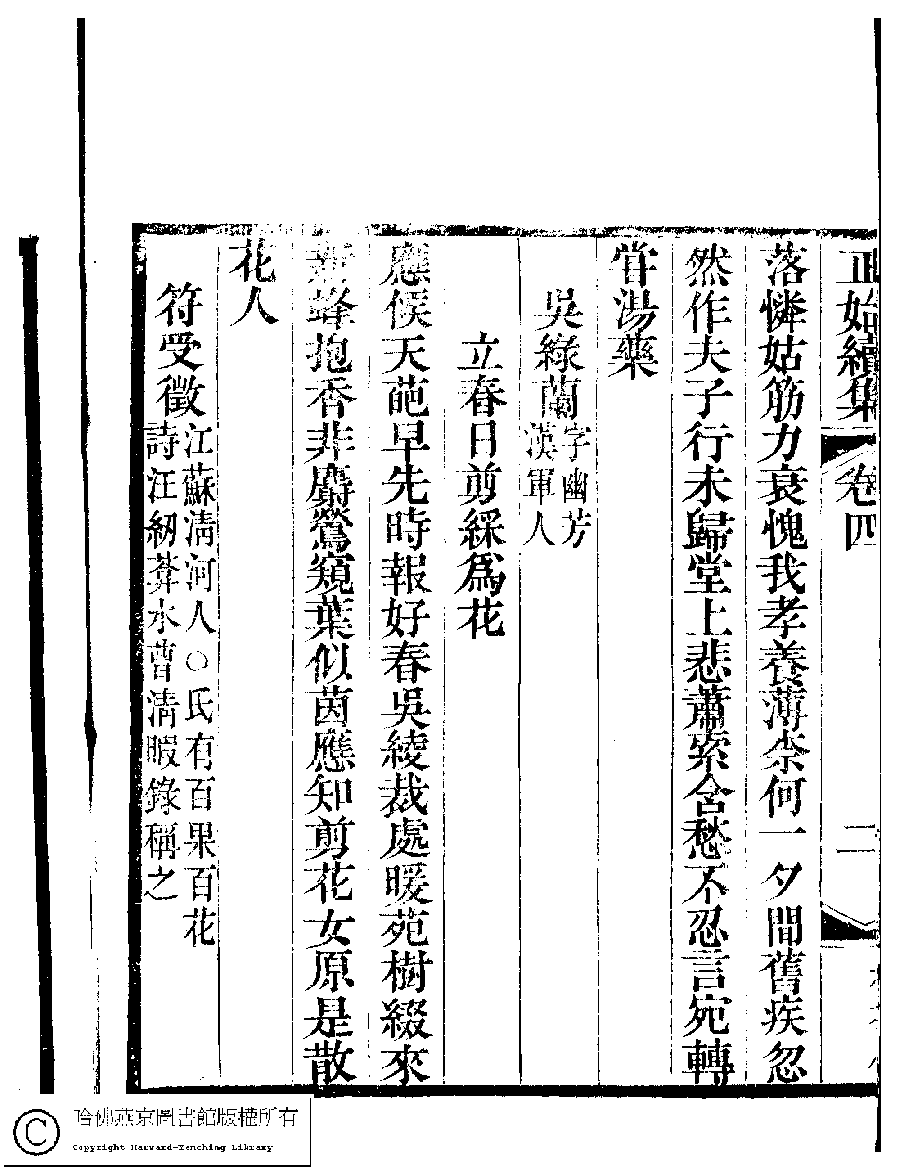 正始續集 卷四 二
落憐姑筋力衰愧我孝養薄柰何一夕間舊疾忽
然作夫子行未歸堂上悲蕭索含愁不忍言宛轉
甞湯藥
吳綠蘭 字幽芳
漢軍人
立春日剪綵爲花
應候天葩早先時報好春吳綾裁處暖苑樹綴來
新蜂抱香非麝鶯窺葉似茵應知剪花女原是散
花人
符受徵 江蘇淸河人○氏有百果百花
詩汪紉葊水曹淸暇錄稱之
哈佛燕京圖書館版權所有
Copyright Harvard-Yenching Library